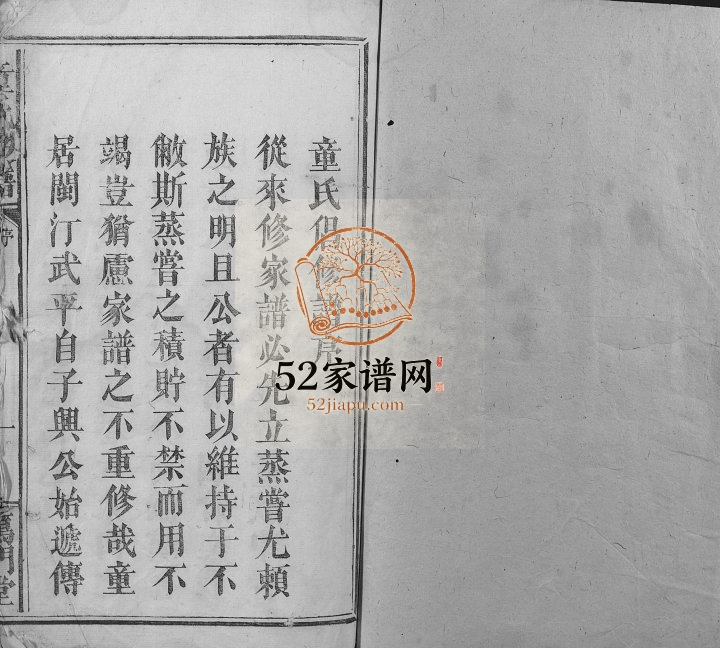 童氏倡修譜序
從來修家譜必先立蒸嘗尤賴
族之明且公者有以維持于不
敝斯蒸嘗之積貯不禁而用不
竭豈猶慮家譜之不重修哉童
居閩汀武平自子興公始遞傳
序
一
鴈門堂
52家谱网
52jiapu.com